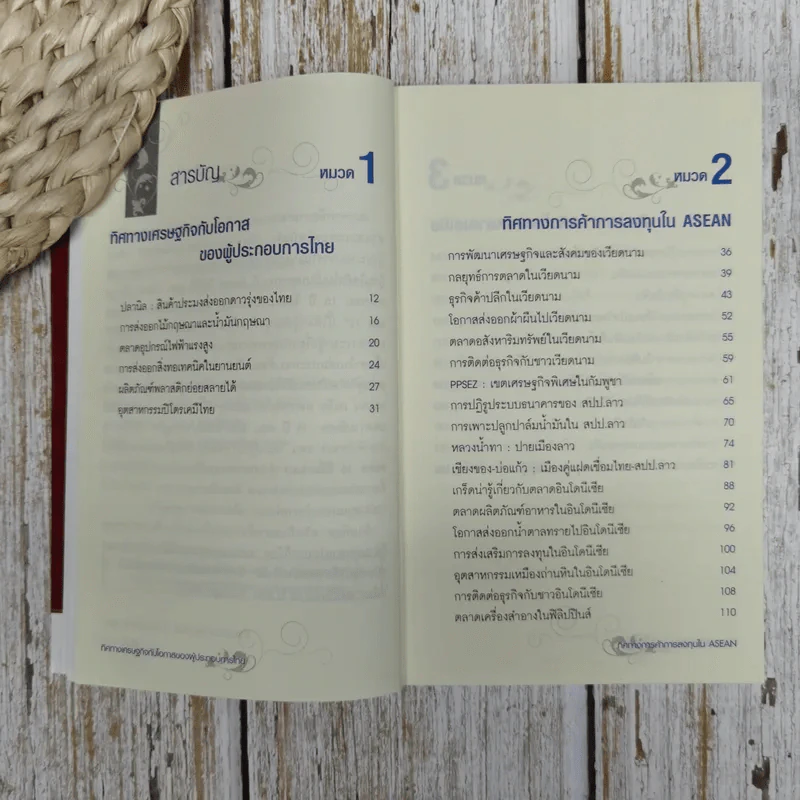 สารบัญ
หมวด 1
ทิศทางเศรษฐกิจกับโอกาส
ของผู้ประกอบการไทย
ปลานิล : สินค้าประมงส่งออกดาวรุ่งของไทย 12
การส่งออกไม้กฤษณาและน้ำมันกฤษณา 16
ตลาดอุปกรณ์ไฟฟ้าแรงสูง 20
การส่งออกสิ่งทอเทคนิคในยานยนต์ 24
ผลิตภัณฑ์พลาสติกย่อยสลายได้ 27
อุตสาหกรรมปิโตรเคมีไทย 31
ทิศทางเศรษฐกิจกับโอกาสของผู้ประกอบการไทย
หมวด 2
ทิศทางการค้าการลงทุนใน ASEAN
การพัฒนาเศรษฐกิจและสังคมของเวียดนาม 36
กลยุทธ์การตลาดในเวียดนาม 39
ธุรกิจค้าปลีกในเวียดนาม 43
โอกาสส่งออกผ้าผืนไปเวียดนาม 52
ตลาดอสังหาริมทรัพย์ในเวียดนาม 55
การติดต่อธุรกิจกับชาวเวียดนาม 59
PPSEZ : เขตเศรษฐกิจพิเศษในกัมพูชา 61
การปฏิรูประบบธนาคารของ สปป.ลาว 65
การเพาะปลูกปาล์มน้ำมันใน สปป.ลาว 70
หลวงน้ำทา : ปายเมืองลาว 74
เชียงของ-บ่อแก้ว : เมืองคู่แฝดเชื่อมไทย-สปป.ลาว 81
เกร็ดน่ารู้เกี่ยวกับตลาดอินโดนีเซีย 88
ตลาดผลิตภัณฑ์อาหารในอินโดนีเซีย 92
โอกาสส่งออกน้ำตาลทรายไปอินโดนีเซีย 96
การส่งเสริมการลงทุนในอินโดนีเซีย 100
อุตสาหกรรมเหมืองถ่านหินในอินโดนีเซีย 104
การติดต่อธุรกิจกับชาวอินโดนีเซีย 108
ตลาดเครื่องสำอางในฟิลิปปินส์ 110
ทิศทางการค้าการลงทุนใน ASEAN